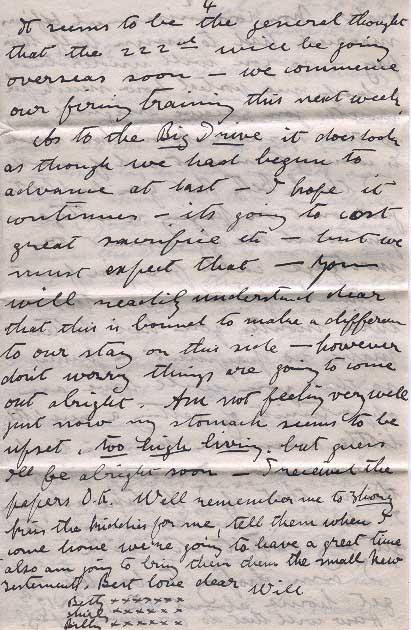 4
It seems to be the general thought
that the 222nd will be going
overseas soon – we commence
our firing training this next week
As to the Big Drive it does look
as though we had begun to
advance at last – I hope it
continues – its going to cost
great sacrifice etc – but we
must expect that – You
will readily understand dear
that this is bound to make a differen
to our stay on this side – however
don't worry things are going to come
out alright. Am not feeling very well
just now my stomach seems to be
upset, too high living, but guess
I'll be alright soon – I received the
papers O.K. Well remember me to
kiss the kiddies for me, tell them when I
come home we're going to have a great time
also am going to bring them down the small New
Best love dear Will
Betty xxxxxxx
xxxxxx
Billy xxxxxx